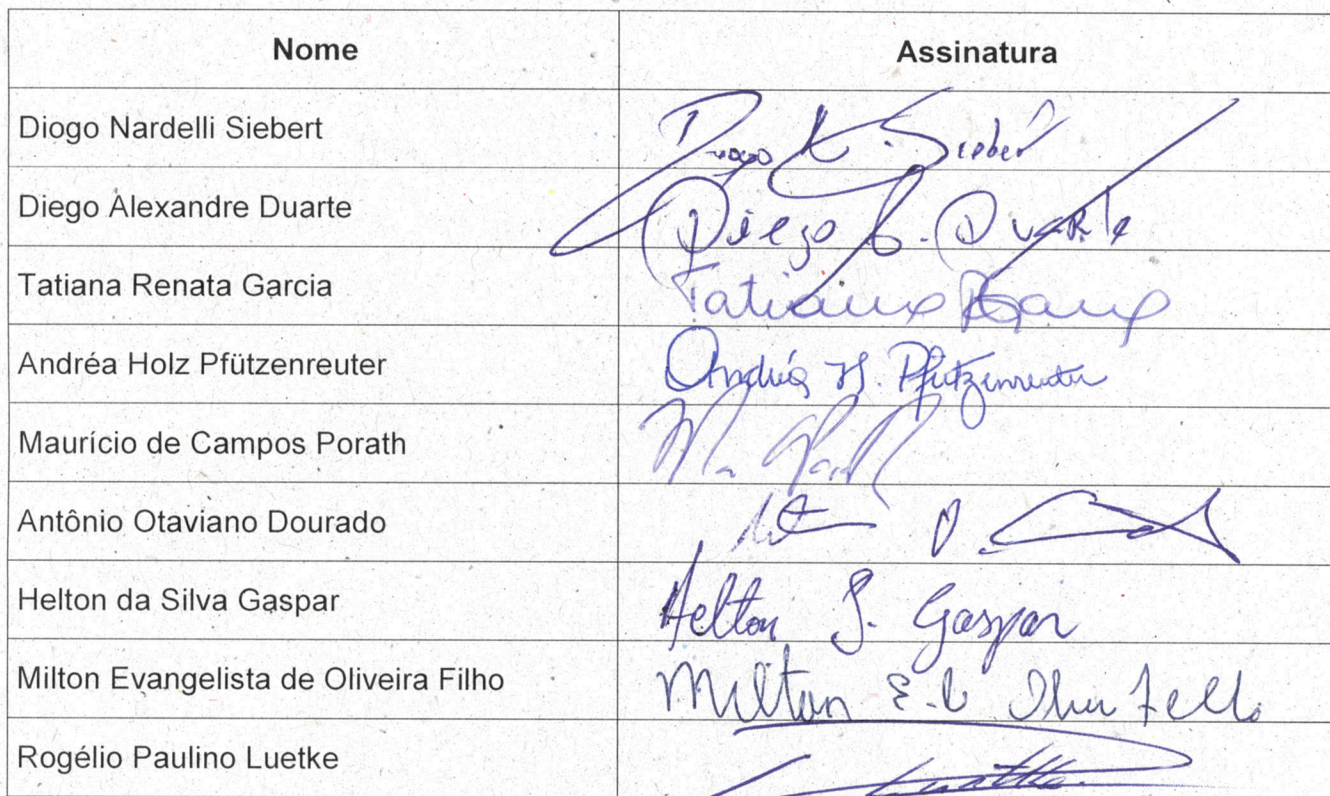 Nome Assinatura
Diogo Nardelli Siebert Diogo N. Siebert
Diego Alexandre Duarte Diego A. Duarte
Tatiana Renata Garcia Tatiana
Andréa Holz Pfützenreuter Andréa H. Pfützenreuter
Maurício de Campos Porath
Antônio Otaviano Dourado
Helton da Silva Gaspar Helton S. Gaspar
Milton Evangelista de Oliveira Filho Milton E.
Rogélio Paulino Luetke